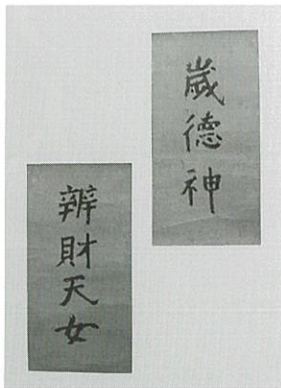 歳德神
辨財天女